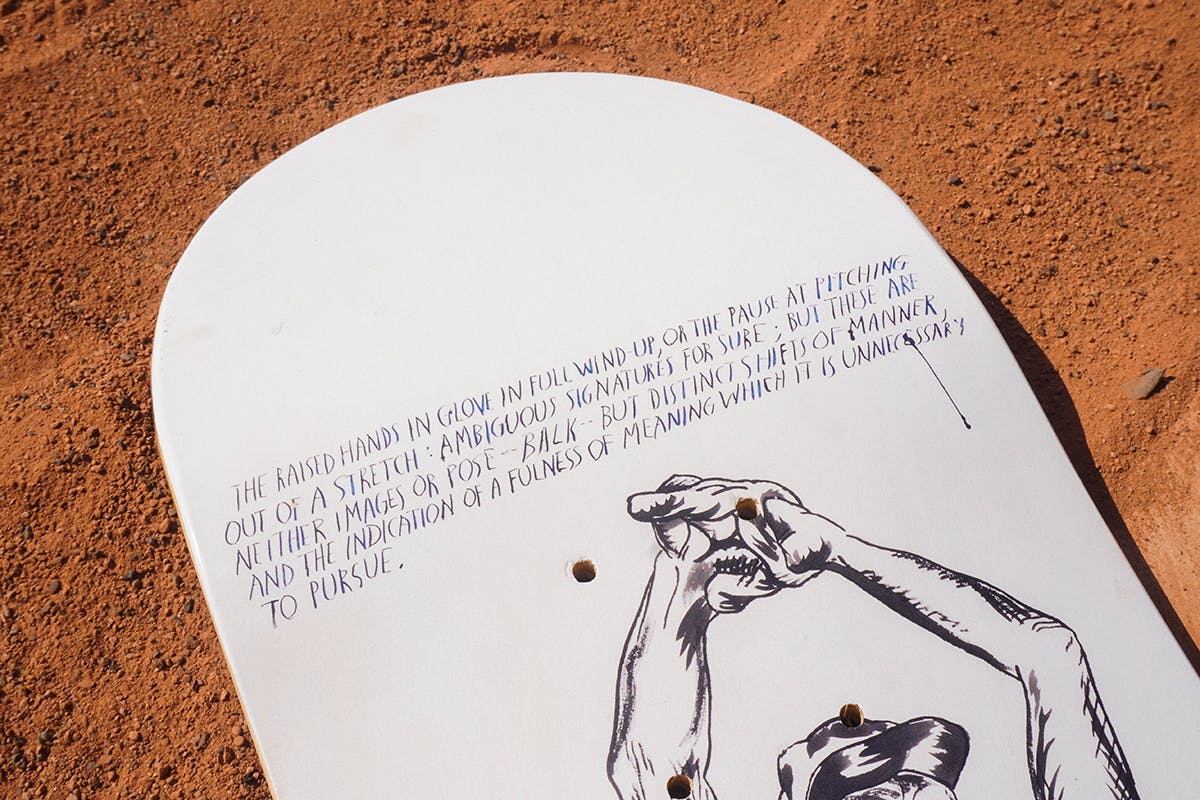 THE RAISED HANDS IN GLOVE IN FULL WIND-UP, OR THE PAUSE AT PITCHING
OUT OF A STRETCH: AMBIGUOUS SIGNATURES FOR SURE; BUT THESE ARE
NEITHER IMAGES OR POSE -- BALK -- BUT DISTINCT SHIFTS OF MANNER,
AND THE INDICATION OF A FULNESS OF MEANING WHICH IT IS UNNECESSARY
TO PURSUE.